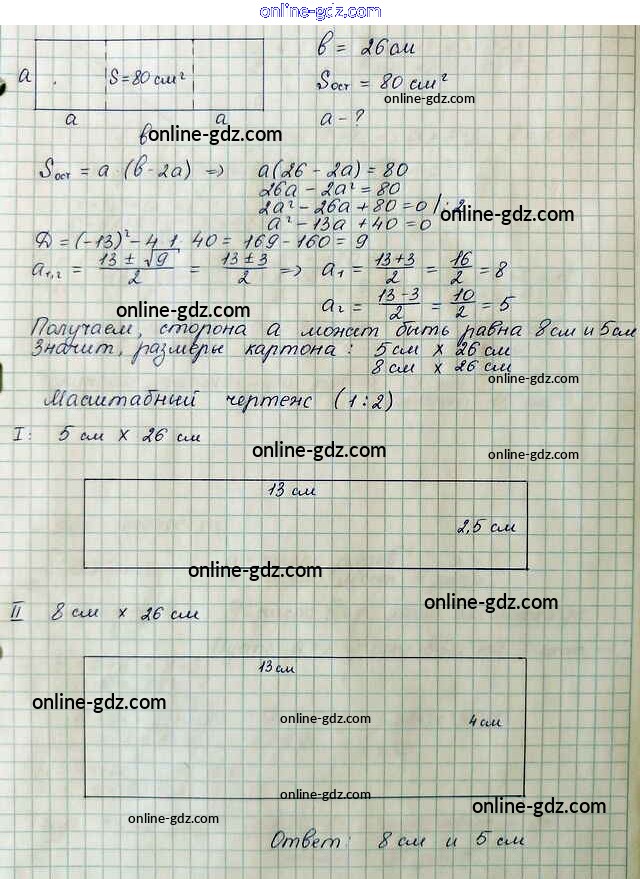 online-gdz.com
b = 26 см
a S = 80 см²
Sост = 80 см²
online-gdz.com
a a
a - ?
b
online-gdz.com
Sост = a · (b - 2a) => a(26 - 2a) = 80
26a - 2a² = 80
2a² - 26a + 80 = 0 /: 2
online-gdz.com
a² - 13a + 40 = 0
D = (-13)² - 4·1·40 = 169 - 160 = 9
a1,2 = (13 ± √9)/2 = (13 ± 3)/2 => a1 = (13+3)/2 = 16/2 = 8
online-gdz.com
a2 = (13-3)/2 = 10/2 = 5
Получаем, сторона a может быть равна 8 см и 5 см
Значит, размеры картона: 5 см x 26 см
8 см x 26 см
online-gdz.com
Масштабный чертеж (1:2)
I: 5 см x 26 см
online-gdz.com
online-gdz.com
13 см
2,5 см
online-gdz.com
online-gdz.com
II 8 см x 26 см
13 см
online-gdz.com
online-gdz.com
4 см
online-gdz.com
online-gdz.com
online-gdz.com
Ответ: 8 см и 5 см